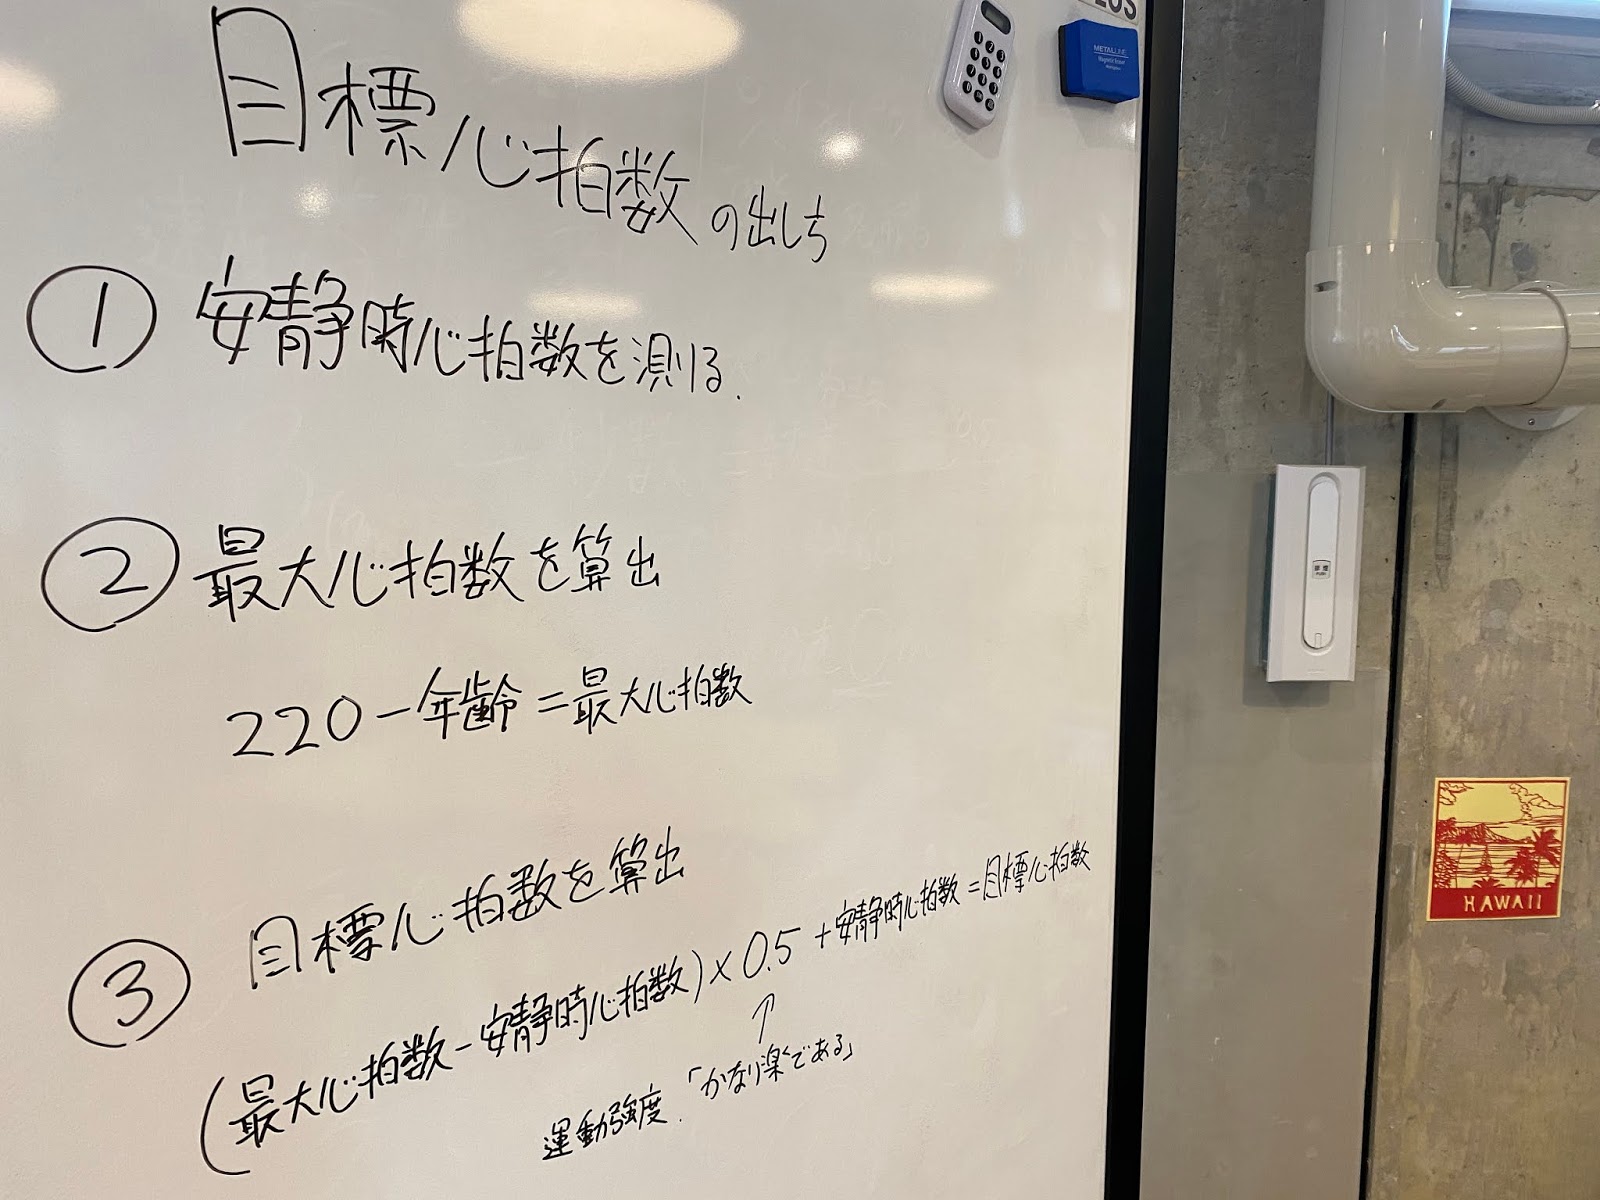 目標心拍数の出し方
① 安静時心拍数を測る.
② 最大心拍数を算出
220-年齢=最大心拍数
③ 目標心拍数を算出
(最大心拍数-安静時心拍数)×0.5+安静時心拍数=目標心拍数
↑
運動強度.「かなり楽である」
METALLIFE
HAWAII